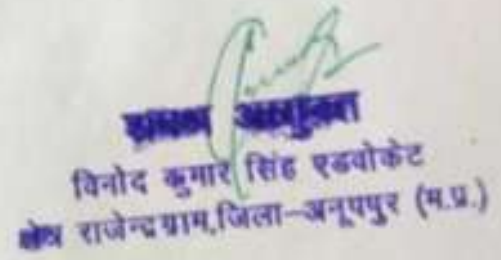 शपथ आयुक्त
विनोद कुमार सिंह एडवोकेट
क्षेत्र राजेन्द्रग्राम,जिला-अनूपपुर (म.प्र.)